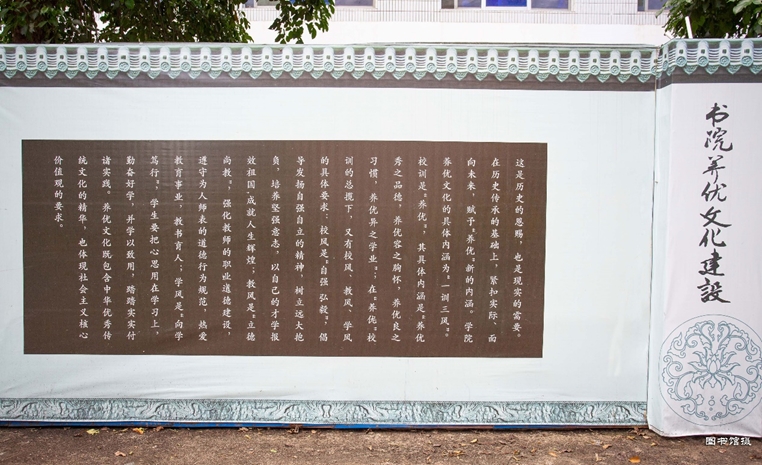 这是历史的恩赐，也是现实的需要。
在历史传承的基础上，紧扣实际、面
向未来，赋予“养优”新的内涵。学院
养优文化的具体内涵为“一训三风”。
校训是“养优”，其具体内涵是“养优
秀之品德，养优容之胸怀，养优良之
习惯，养优异之学业”；在“养优”校
训的总揽下，又有校风、教风、学风
的具体要求：校风是“自强 弘毅”，倡
导发扬自强自立的精神，树立远大抱
负，培养坚强意志，以自己的才学报
效祖国，成就人生辉煌；教风是“立德
尚教”，强化教师的职业道德建设，
遵守为人师表的道德行为规范，热爱
教育事业，教书育人；学风是“向学
笃行”，学生要把心思用在学习上，
勤奋好学，并学以致用，踏踏实实付
诸实践。养优文化既包含中华优秀传
统文化的精华，也体现社会主义核心
价值观的要求。
书院养优文化建設
图书馆摄